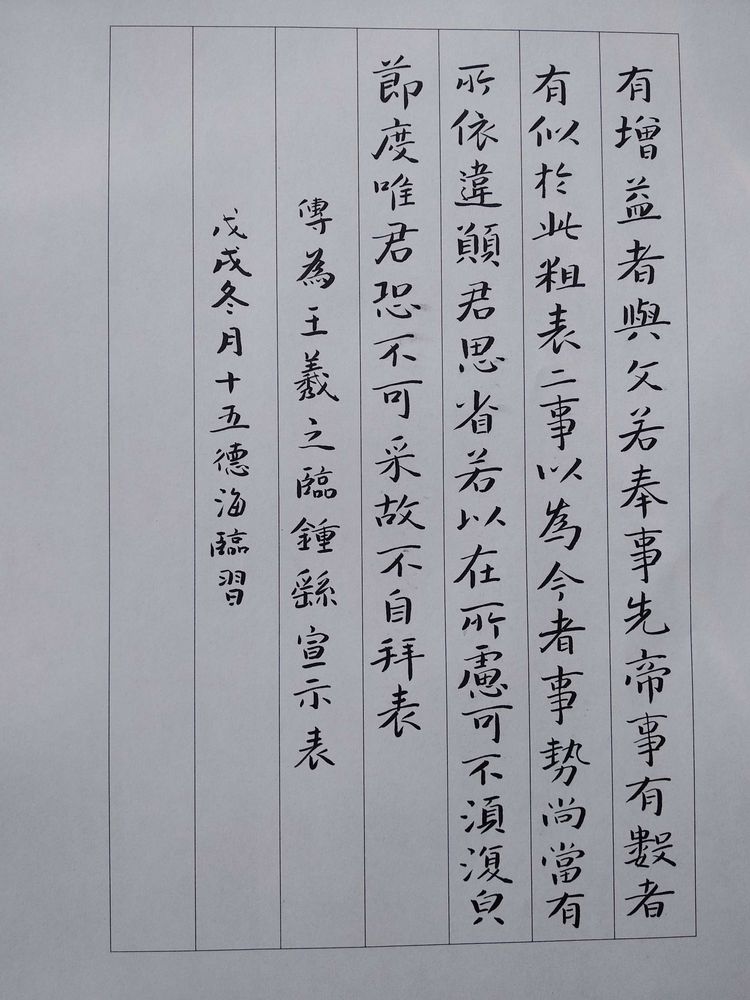 有增益者與文若奉事先帝事有數者
有似於此粗表二事以為今者事勢尚當有
所依違願君思省若以在所慮可不須復白
節度唯君恐不可采故不自拜表
傳為王羲之臨鍾繇宣示表
戊戌冬月十五德海臨習